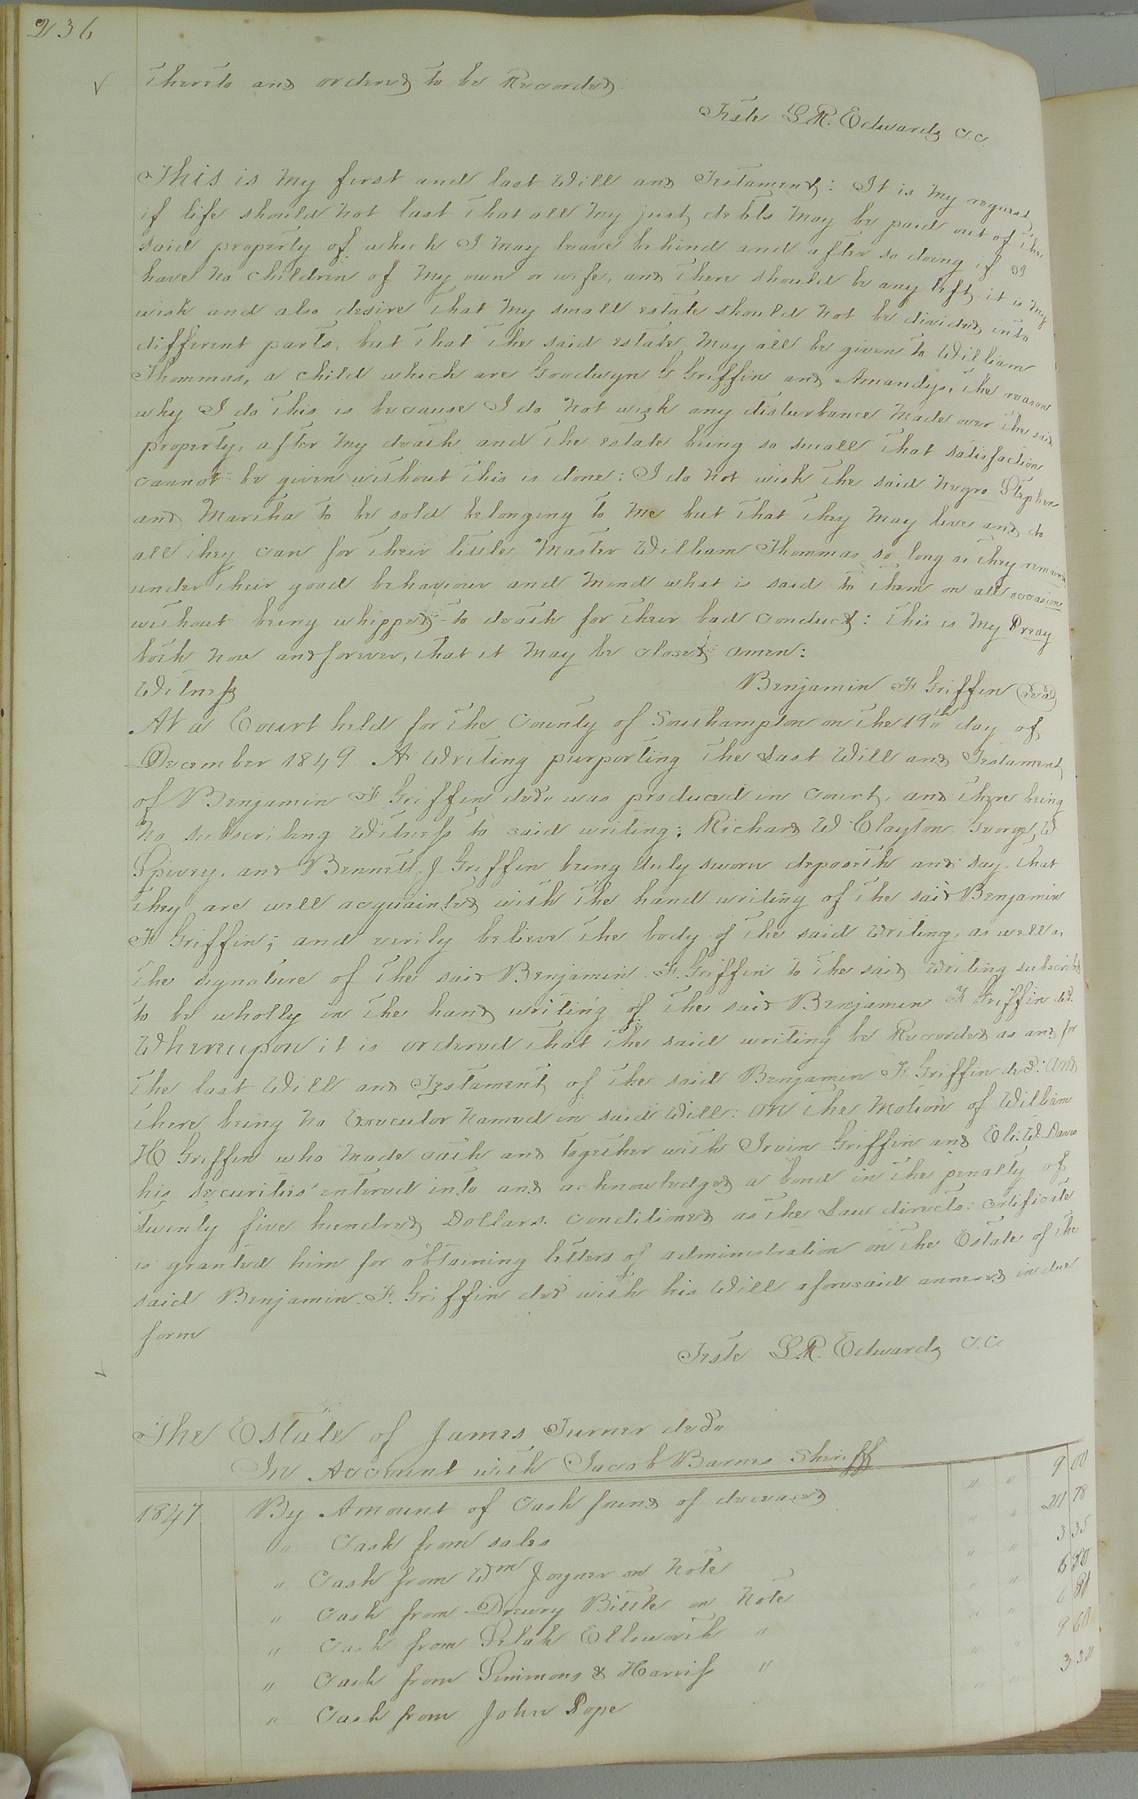 236
thereto and ordered to be Recorded
Teste L.R. Edwards CC
This is my first and last Will and Testament: It is my request
if life should not last that all my just debts may be paid out of the
said property of which I may leave behind and after so doing if I
have no children of my own or wife, and there should be any left, it is my
wish and also desire that my small estate should not be divided into
different parts, but that the said estate may all be given to William
Thommas, a child which are Goodwyn G Griffin and Amandys, the reason
why I do this is because I do not wish any disturbance made over the said
property, after my death and the estate being so small that satisfaction
cannot be given without this is done: I do not wish the said negro Stephen
and Martha to be sold belonging to me but that they may live and do
all they can for their little Master William Thommas so long as they remain
under their good behaviour and mind what is said to them on all occasions
without being whipped to death for their bad conduct: this is my Pray
both now and forever, that it may be closed amen:
Witness Benjamin F Griffin (Seal)
At a Court held for the County of Southampton on the 19th day of
December 1849 A Writing purporting the Last Will and Testament
of Benjamin F Griffin decd. was produced in court, and there being
no subscribing Witness to said writing: Richard W Clayton George W
Spivey, and Bennett J Griffin being duly sworn deposeth and say that
they are well acquainted with the hand writing of the said Benjamin
F Griffin; and verily believe the body of the said writing, as well as
the signature of the said Benjamin F. Griffin to the said writing subscribed
to be wholly in the hand writing of the said Benjamin F Griffin decd.
Whereupon it is ordered that the said writing be Recorded as and for
the last Will and Testament of the said Benjamin F. Griffin decd: And
there being no Executor named in said Will: on the motion of William
H Griffin who made oath and together with Irvin Griffin and Eli W Davis
his securities entered into and acknowledged a bond in the penalty of
twenty five hundred Dollars. conditioned as the Law directs: certificate
is granted him for obtaining letters of administration on the Estate of the
said Benjamin F. Griffin decd with his Will aforesaid annexed in due
form
Teste L.R. Edwards C.C
The Estate of James Turner decd.
In Account with Jacob Barnes Sheriff
1847 By Amount of Cash found of deceased " " 9 00
" Cash from sales " " 211 78
" Cash from Wm Joyner on Note " " 3 35
" Cash from Drewry Bittle on Note " "
" Cash from Selah Ellsworth " " "
" Cash from Simmons & Harriss " " " 9 60
" Cash from John Pope " "